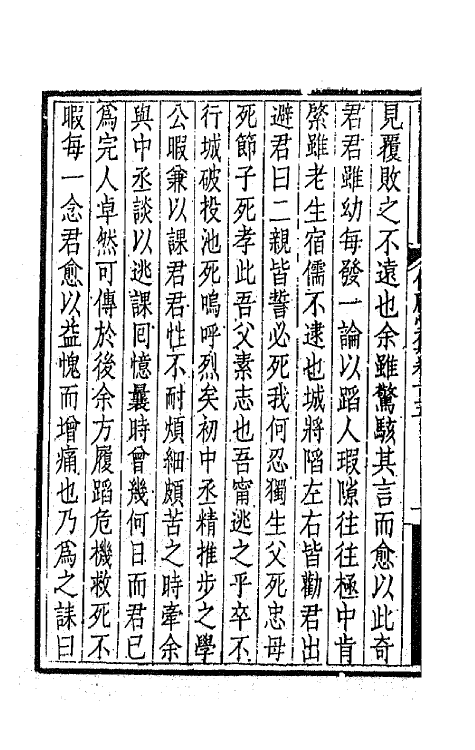 見覆敗之不遠也余雖驚駭其言而愈以此奇
君君雖幼每發一論以蹈人瑕隙往往極中肯
綮雖老生宿儒不逮也城將陷左右皆勸君出
避君曰二親皆誓必死我何忍獨生父死忠母
死節子死孝此吾父素志也吾甯逃之乎卒不
行城破投池死嗚呼烈矣初中丞精推步之學
公暇兼以課君君性不耐煩細頗苦之時牽余
與中丞談以逃課回憶曩時曾幾何日而君已
為完人卓然可傳於後余方履蹈危機救死不
暇每一念君愈以益愧而增痛也乃為之誄曰